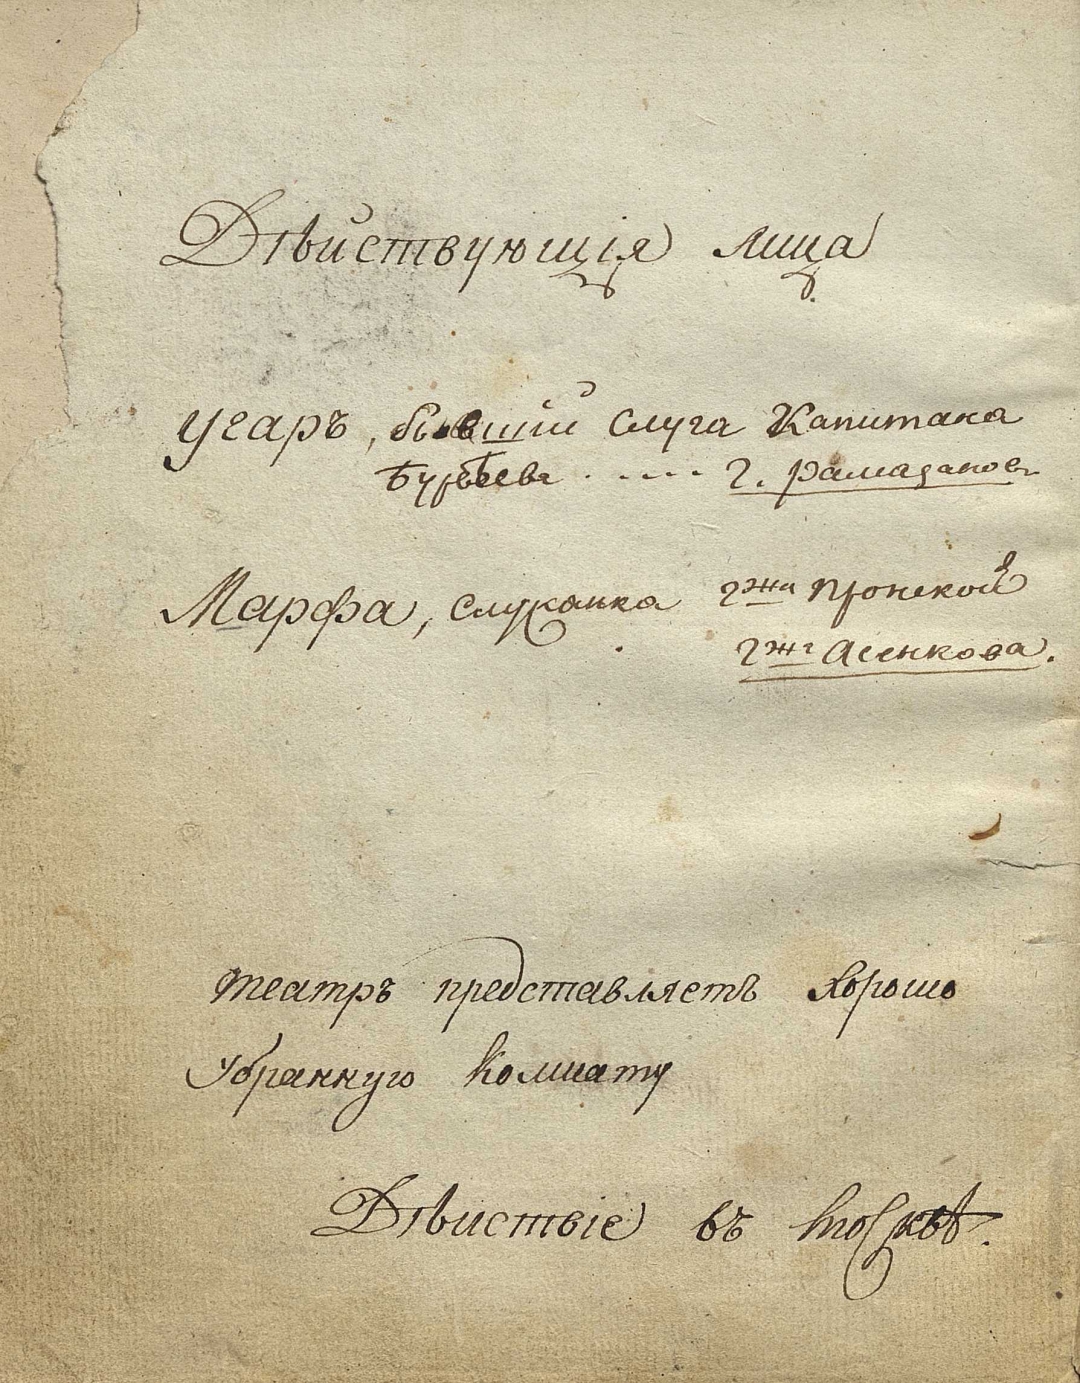 Дѣйствующія лица
Угаръ, бывшій слуга Капитана
Бурѣева . . . . . . г. Рамазановъ
Марфа, служанка гжи Пронской
гжа Асенкова.
театръ представляетъ хорошо
убранную комнату
Дѣиствіе въ Москвѣ.